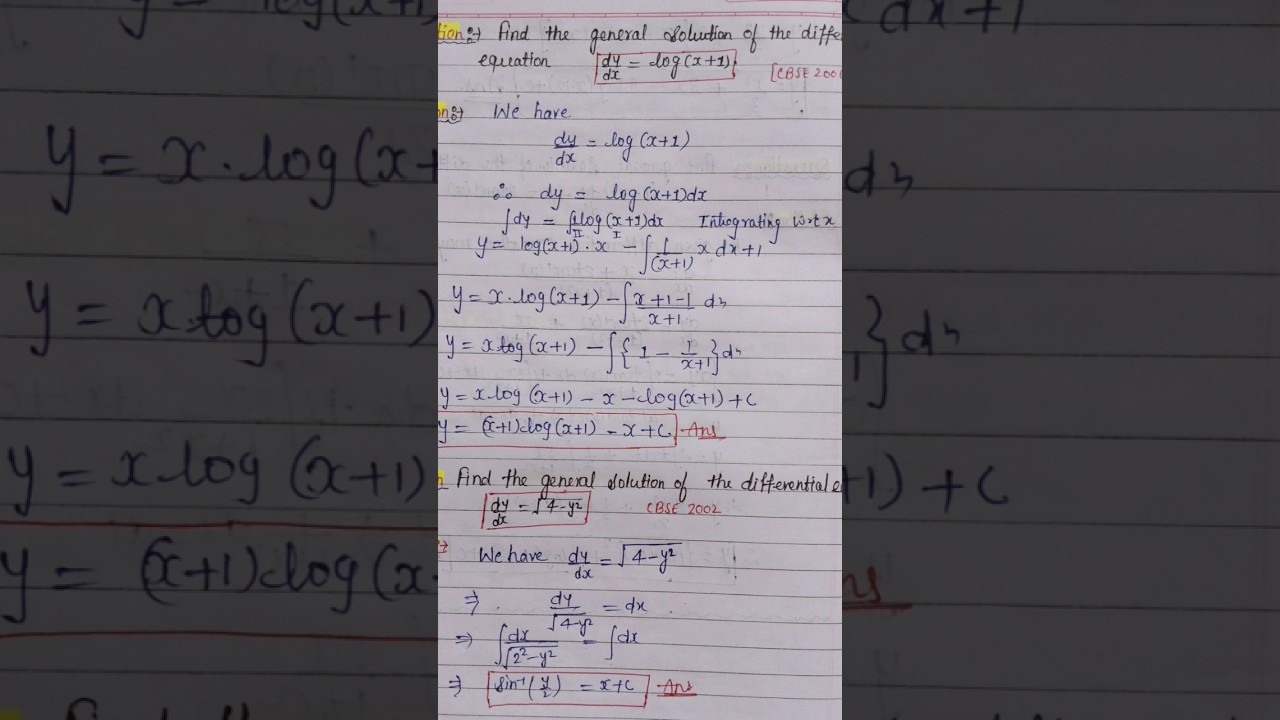 tion:→ Find the general solution of the diffe
equation dy/dx = log(x+1) [CBSE 200
on:→ We have
dy/dx = log(x+1)
∴ dy = log(x+1)dx
∫dy = ∫1log(x+1)dx Integrating w.r.t x
II I
y = log(x+1)·x − ∫1/(x+1) x dx+1
y = x·log(x+1) − ∫(x+1−1)/(x+1) dx
y = x log(x+1) − ∫{1 − 1/(x+1)}dx
y = x log(x+1) − x − log(x+1) + C
y = (x+1)log(x+1) − x + C Ans
n Find the general solution of the differential e
dy/dx = √4−y² CBSE 2002
We have dy/dx = √4−y²
⇒ dy/√4−y² = dx
⇒ ∫dx/√2²−y² = ∫dx
⇒ sin⁻¹(y/2) = x+C Ans